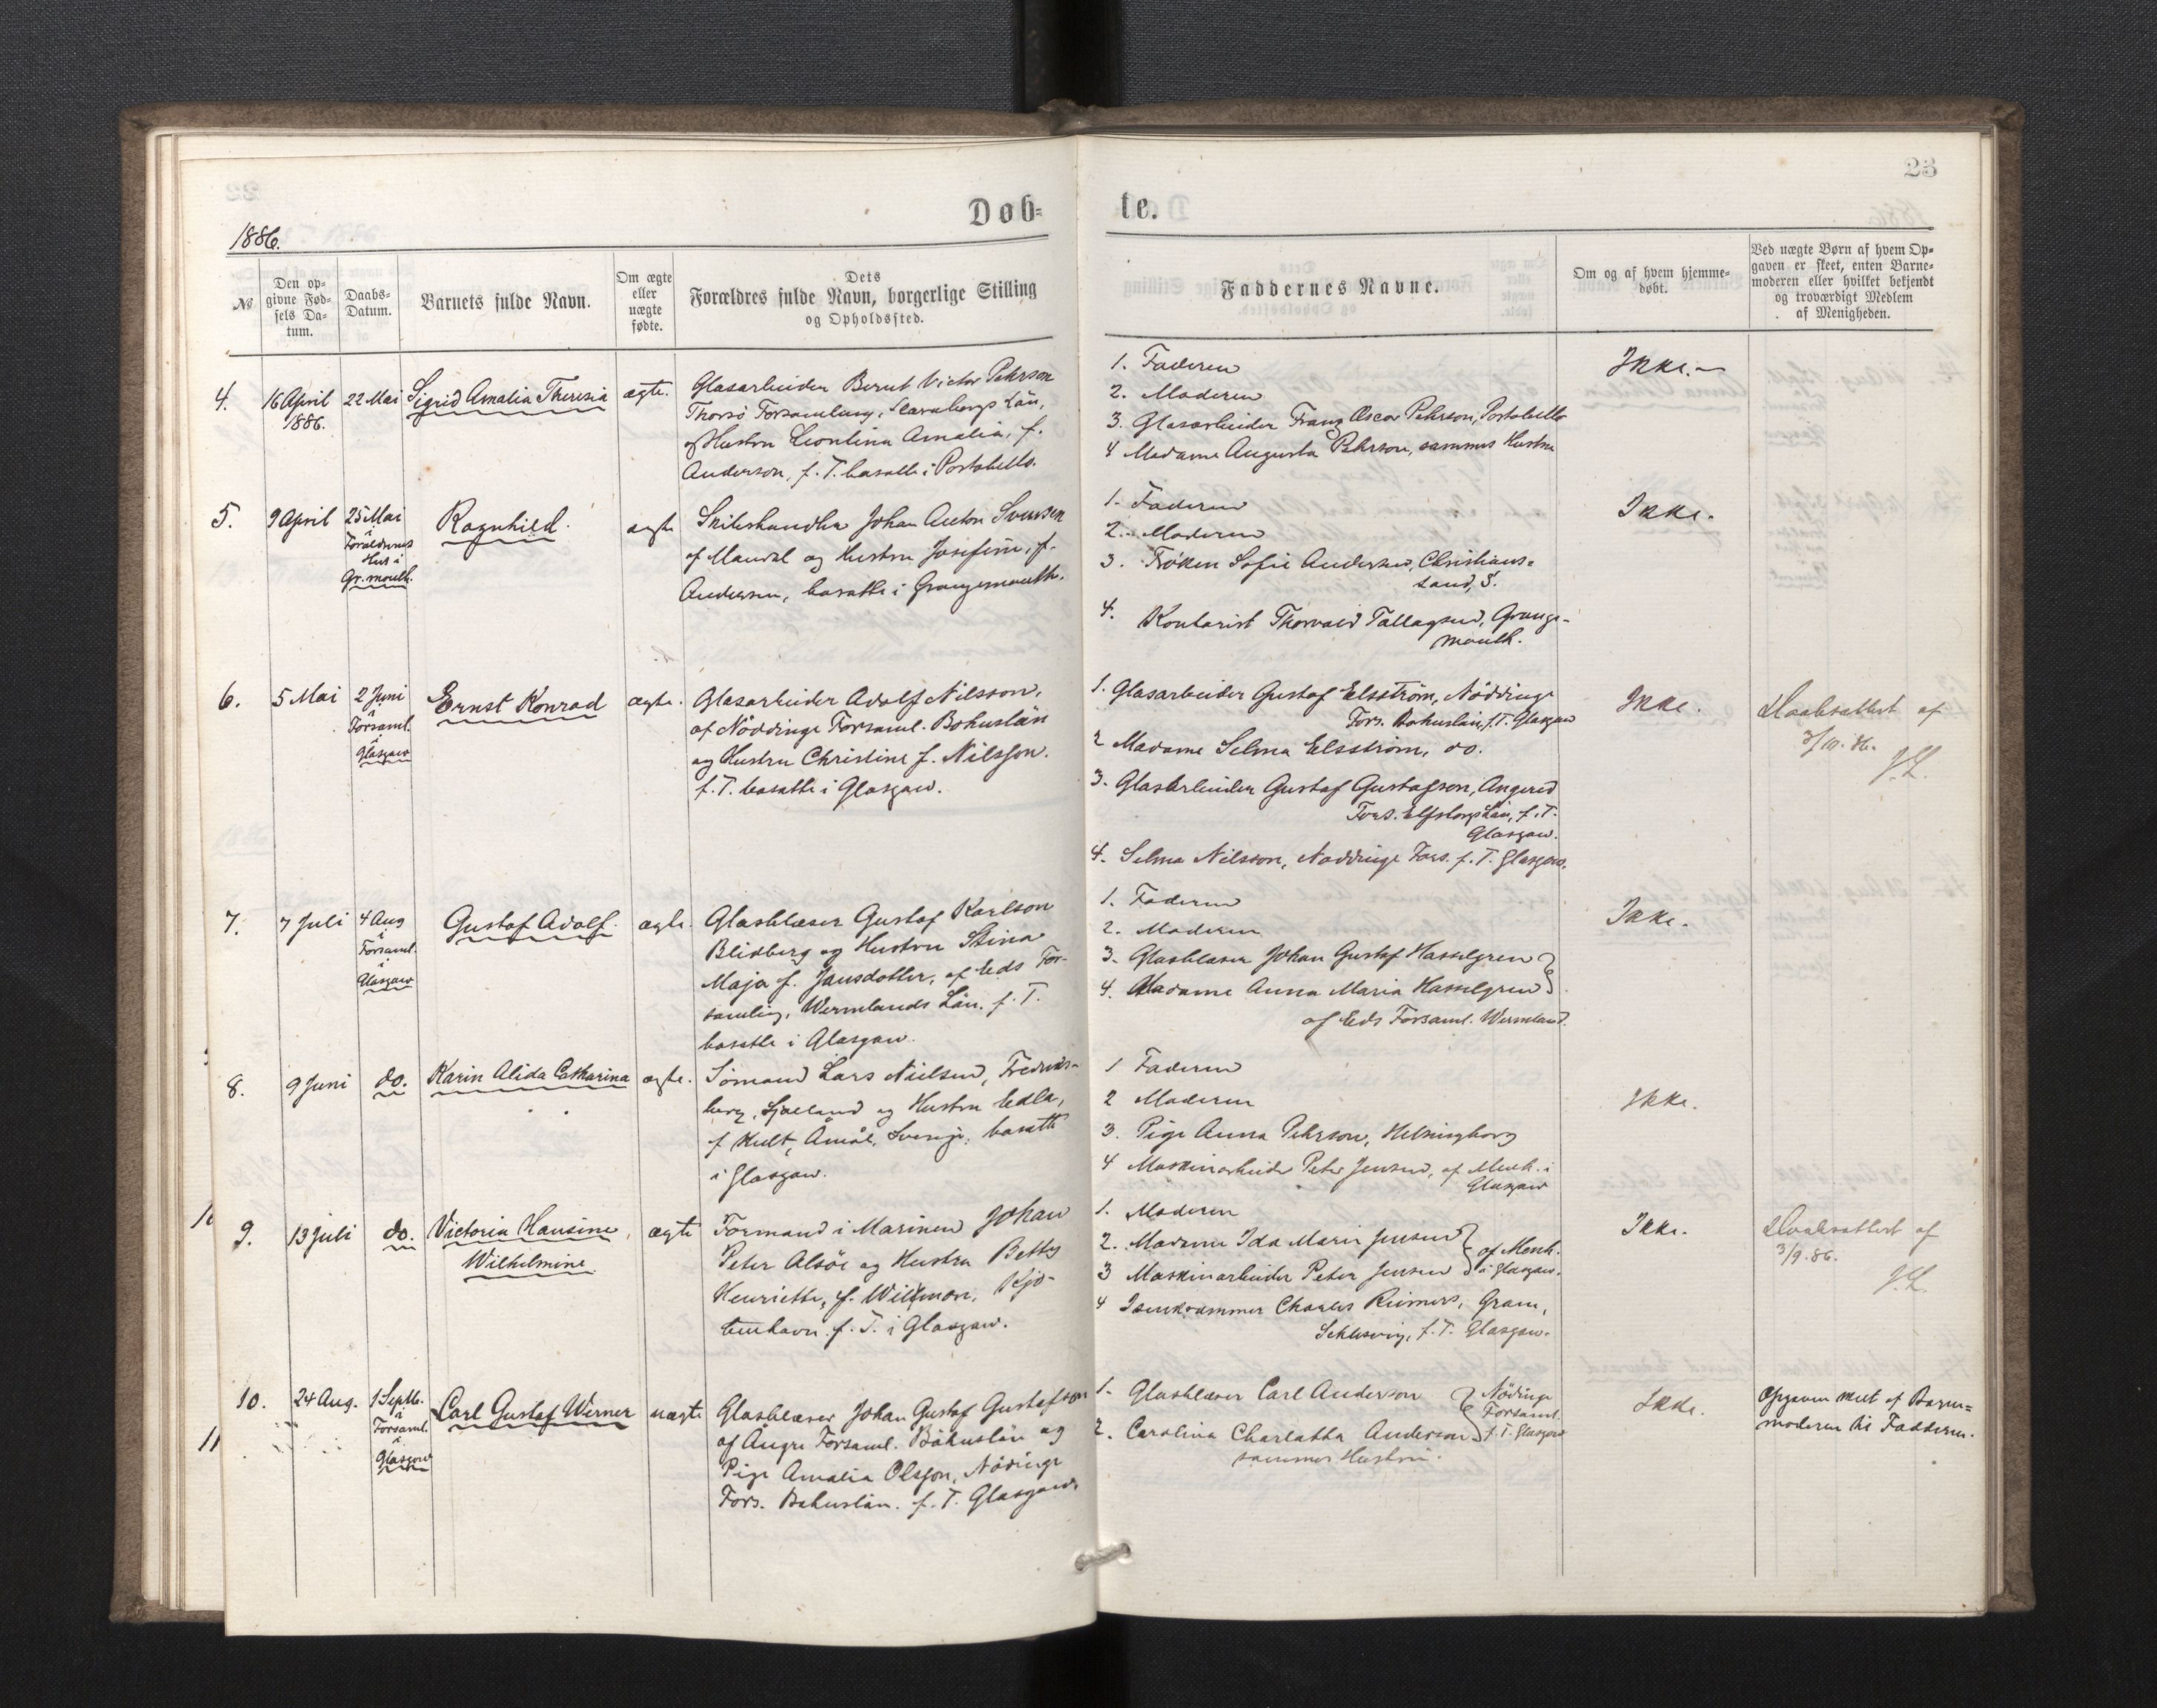 23
Døb=
te.
1886.
№
Den op=
givne Fød=
sels Da=
tum.
Daabs=
Datum.
Barnets fulde Navn.
Om ægte
eller
uægte
fødte.
Dets
Forældres fulde Navn, borgerlige Stilling
og Opholdssted.
Faddernes Navne.
Om og af hvem hjemme=
døbt.
Ved uægte Børn af hvem Op=
gaven er skeet, enten Barne=
moderen eller hvilket bekjendt
og troværdigt Medlem
af Menigheden.
4.
16 April
1886.
22 Mai
Sigrid Amalia Theresia
ægte.
Glasarbeider Bernt Victor Pehrson
Thorsö Forsamlung, Skaraborgs Län,
og Hustru Leontina Amalia, f.
Anderson, f. T. bosatte i Portobello.
1. Faderen
2. Moderen
3. Glasarbeider Franz Oscar Pehrson, Portobello
4 Madame Augusta Pehrson, sammes Hustru
Ikke.
5.
9 April
25 Mai
i
Forældrenes
Hus i
Gr. mouth.
Ragnhild.
ægte
Skibshandler Johan Anton Svensen
af Mandal og Hustru Josefine, f.
Andersen, bosatte i Grangemouth.
1. Faderen
2. Moderen
3. Frøken Sofie Andersen, Christians=
sand, S.
4. Kontorist Thorvald Tallagsen, Grange-
mouth.
Ikke.
6.
5 Mai
2 Juni
i
Forsaml.
i
Glasgow
Ernst Konrad
ægte.
Glasarbeider Adolf Nilsson,
af Nöddinge Forsaml. Bohuslän
og Hustru Christine f. Nilsson.
f. T. bosatte i Glasgow.
1. Glasarbeider Gustaf Elsström, Nöddinge
Fors. Bohuslän, f. T. Glasgow
2 Madame Selma Elsström, do.
3. Glasarbeider Gustaf Gustafson, Angered
Fors. Elfsborgs Län, f. T.
Glasgow.
4. Selma Nilsson, Nöddinge Fors. f. T. Glasgow.
Ikke.
Daabsattest af
3/10. 86.
7.
7 Juli
4 Aug
i
Forsaml.
i
Glasgow
Gustaf Adolf.
ægte.
Glasblæser Gustaf Karlson
Blidberg og Hustru Stina
Maja f. Jansdotter, af Eds For-
samling, Wermlands Län. f. T.
bosatte i Glasgow.
1. Faderen
2. Moderen
3. Glasblæser Johan Gustaf Hasselgren
4. Madame Anna Maria Hasselgren
af Eds Forsaml. Wermland.
Ikke.
8.
9 Juni
do.
Karin Alida Catharina
ægte.
Sømand Lars Nielsen, Fredriks-
berg, Sjælland og Hustru Edla,
f Hult, Åmål, Sverige, bosatte
i Glasgow.
1 Faderen
2 Moderen
3. Pige Anna Pehrson, Helsingborg
4 Maskinarbeider Peter Jensen, af Menh. i
Glasgow
Ikke.
9.
13 Juli
do.
Victoria Hansine
Wilhelmine
ægte
Formand i Marinen Johan
Peter Alsöe og Hustru Betty
Henriette, f. Willmon, Kjø-
benhavn. f. T. i Glasgow.
1. Moderen
2. Madame Ida Marie Jensen
3 Maskinarbeider Peter Jensen
af Menh.
i Glasgow.
4 Isenkræmmer Charles Reimers, Gram,
Schlesvig, f. T. Glasgow.
Ikke.
Daabsattest af
3/9. 86.
10.
24 Aug.
1 Septb.
i
Forsaml.
i
Glasgow
Carl Gustaf Werner
uægte
Glasblæser Johan Gustaf Gustafson
af Angre Forsaml. Bohuslän og
Pige Amalia Olsson, Nödinge
Fors. Bohuslän. f. T. Glasgow.
1. Glasblæser Carl Anderson
2. Carolina Charlotta Anderson
sammes Hustru.
Nödinge
Forsaml.
f. T. Glasgow
Ikke.
Opgaven skeet af Barne=
moderen til Fadderne.
11